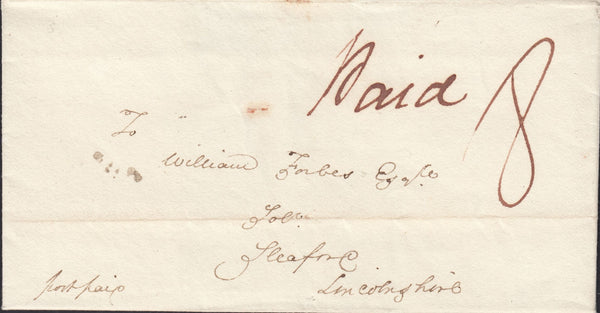 Paid 8
To
William Forbes Esqre
Solr
Sleaford
post paid Lincolnshire